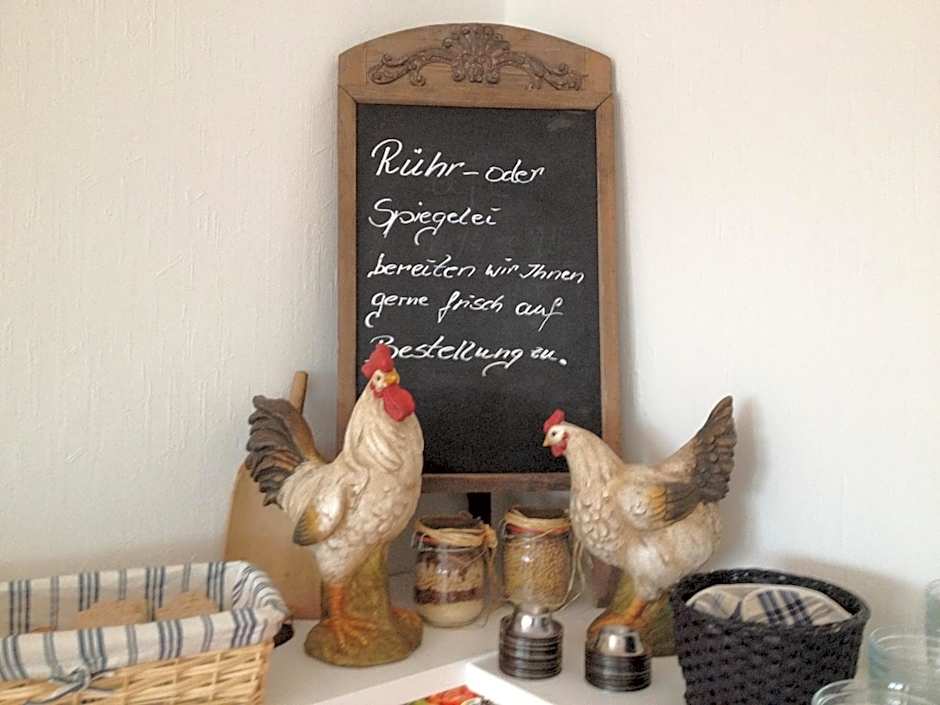 Rühr- oder
Spiegelei
bereiten wir Ihnen
gerne frisch auf
Bestellung zu.